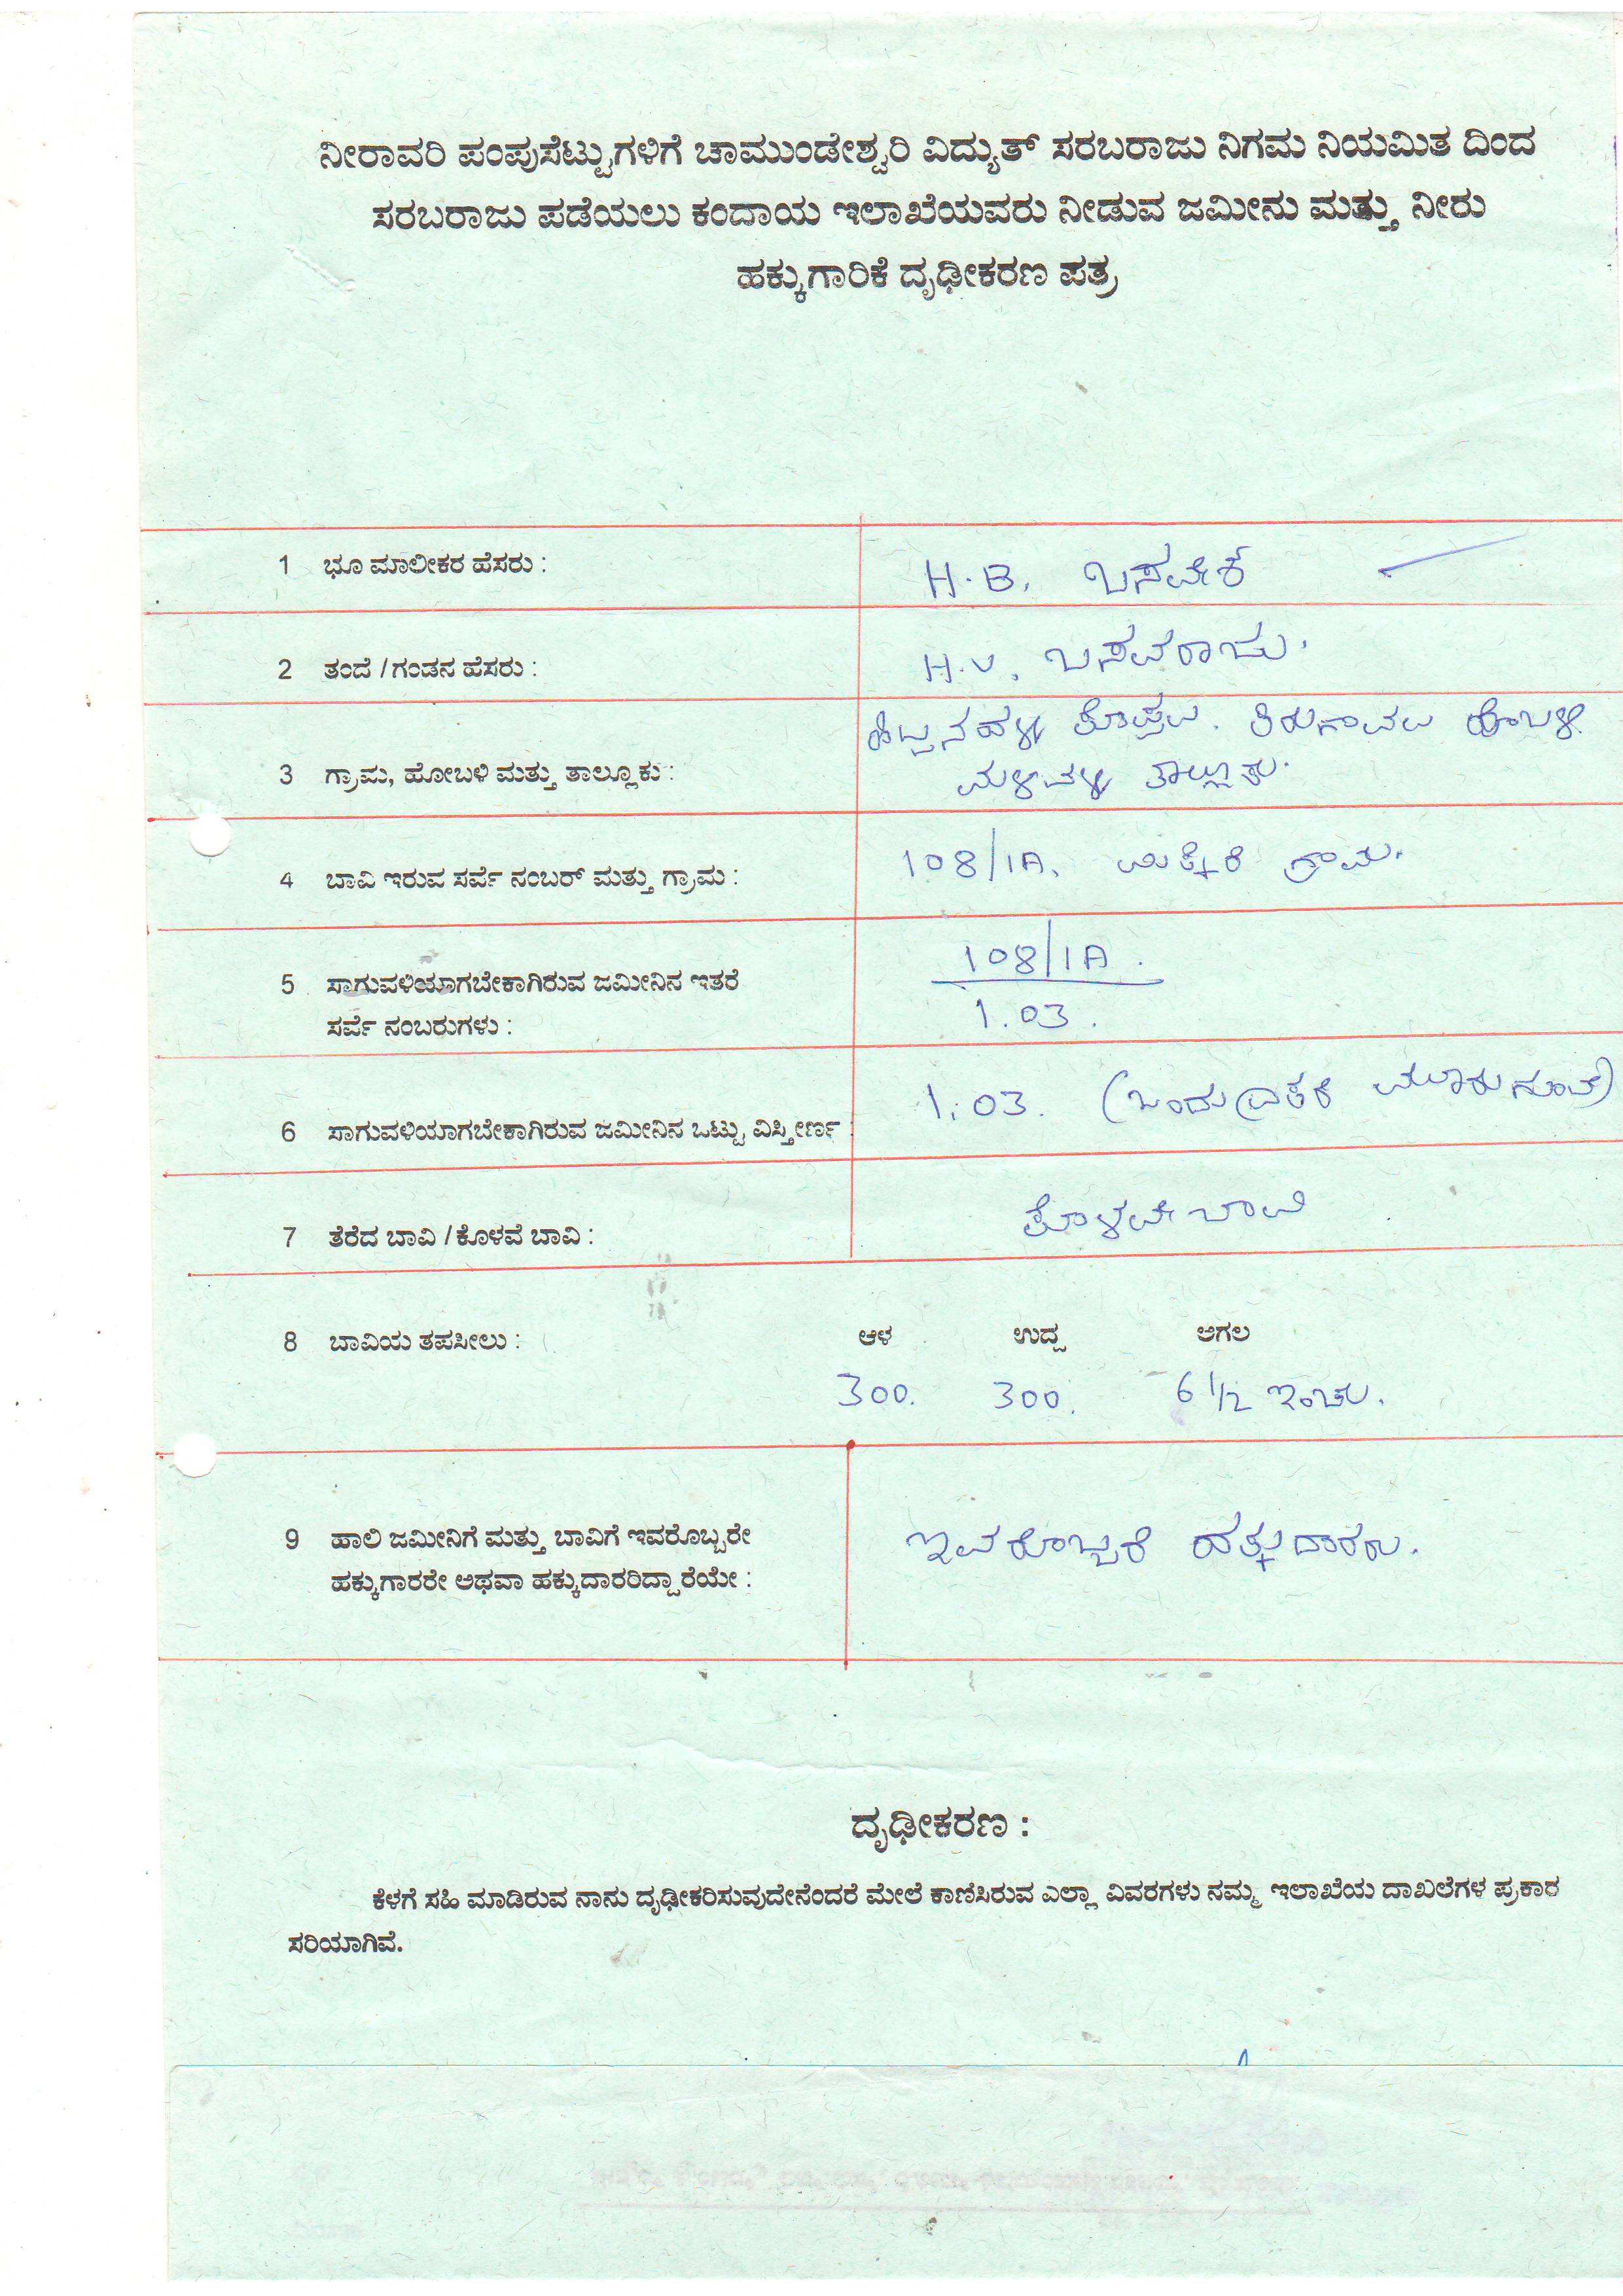 ನೀರಾವರಿ ಪಂಪುಸೆಟ್ಟುಗಳಿಗೆ ಚಾಮುಂಡೇಶ್ವರಿ ವಿದ್ಯುತ್ ಸರಬರಾಜು ನಿಗಮ ನಿಯಮಿತ ದಿಂದ
ಸರಬರಾಜು ಪಡೆಯಲು ಕಂದಾಯ ಇಲಾಖೆಯವರು ನೀಡುವ ಜಮೀನು ಮತ್ತು ನೀರು
ಹಕ್ಕುಗಾರಿಕೆ ದೃಢೀಕರಣ ಪತ್ರ
1 ಭೂ ಮಾಲೀಕರ ಹೆಸರು : H.B.
2 ತಂದೆ / ಗಂಡನ ಹೆಸರು : H.V. ಬಸವರಾಜು.
ಕೊಪ್ಪಲು. ಕಿರುಗಾವಲು ಹೋಬಳಿ
3 ಗ್ರಾಮ, ಹೋಬಳಿ ಮತ್ತು ತಾಲ್ಲೂಕು : ಮಳವಳ್ಳಿ ತಾಲ್ಲೂಕು.
4 ಬಾವಿ ಇರುವ ಸರ್ವೆ ನಂಬರ್ ಮತ್ತು ಗ್ರಾಮ : 108/1A, ಗ್ರಾಮ.
5 ಸಾಗುವಳಿಯಾಗಬೇಕಾಗಿರುವ ಜಮೀನಿನ ಇತರೆ 108/1A.
ಸರ್ವೆ ನಂಬರುಗಳು : 1.03.
6 ಸಾಗುವಳಿಯಾಗಬೇಕಾಗಿರುವ ಜಮೀನಿನ ಒಟ್ಟು ವಿಸ್ತೀರ್ಣ 1.03. (ಒಂದು ಎಕರೆ ಮೂರು ಗುಂಟೆ)
7 ತೆರೆದ ಬಾವಿ / ಕೊಳವೆ ಬಾವಿ : ಕೊಳವೇ ಬಾವಿ
8 ಬಾವಿಯ ತಪಸೀಲು : ಆಳ ಉದ್ದ ಅಗಲ
300. 300. 6 1/2 ಇಂಚು.
9 ಹಾಲಿ ಜಮೀನಿಗೆ ಮತ್ತು ಬಾವಿಗೆ ಇವರೊಬ್ಬರೇ ಇವರೊಬ್ಬರೆ ಹಕ್ಕುದಾರರು.
ಹಕ್ಕುಗಾರರೇ ಅಥವಾ ಹಕ್ಕುದಾರರಿದ್ದಾರೆಯೇ :
ದೃಢೀಕರಣ :
ಕೆಳಗೆ ಸಹಿ ಮಾಡಿರುವ ನಾನು ದೃಢೀಕರಿಸುವುದೇನೆಂದರೆ ಮೇಲೆ ಕಾಣಿಸಿರುವ ಎಲ್ಲಾ ವಿವರಗಳು ನಮ್ಮ ಇಲಾಖೆಯ ದಾಖಲೆಗಳ ಪ್ರಕಾರ
ಸರಿಯಾಗಿವೆ.